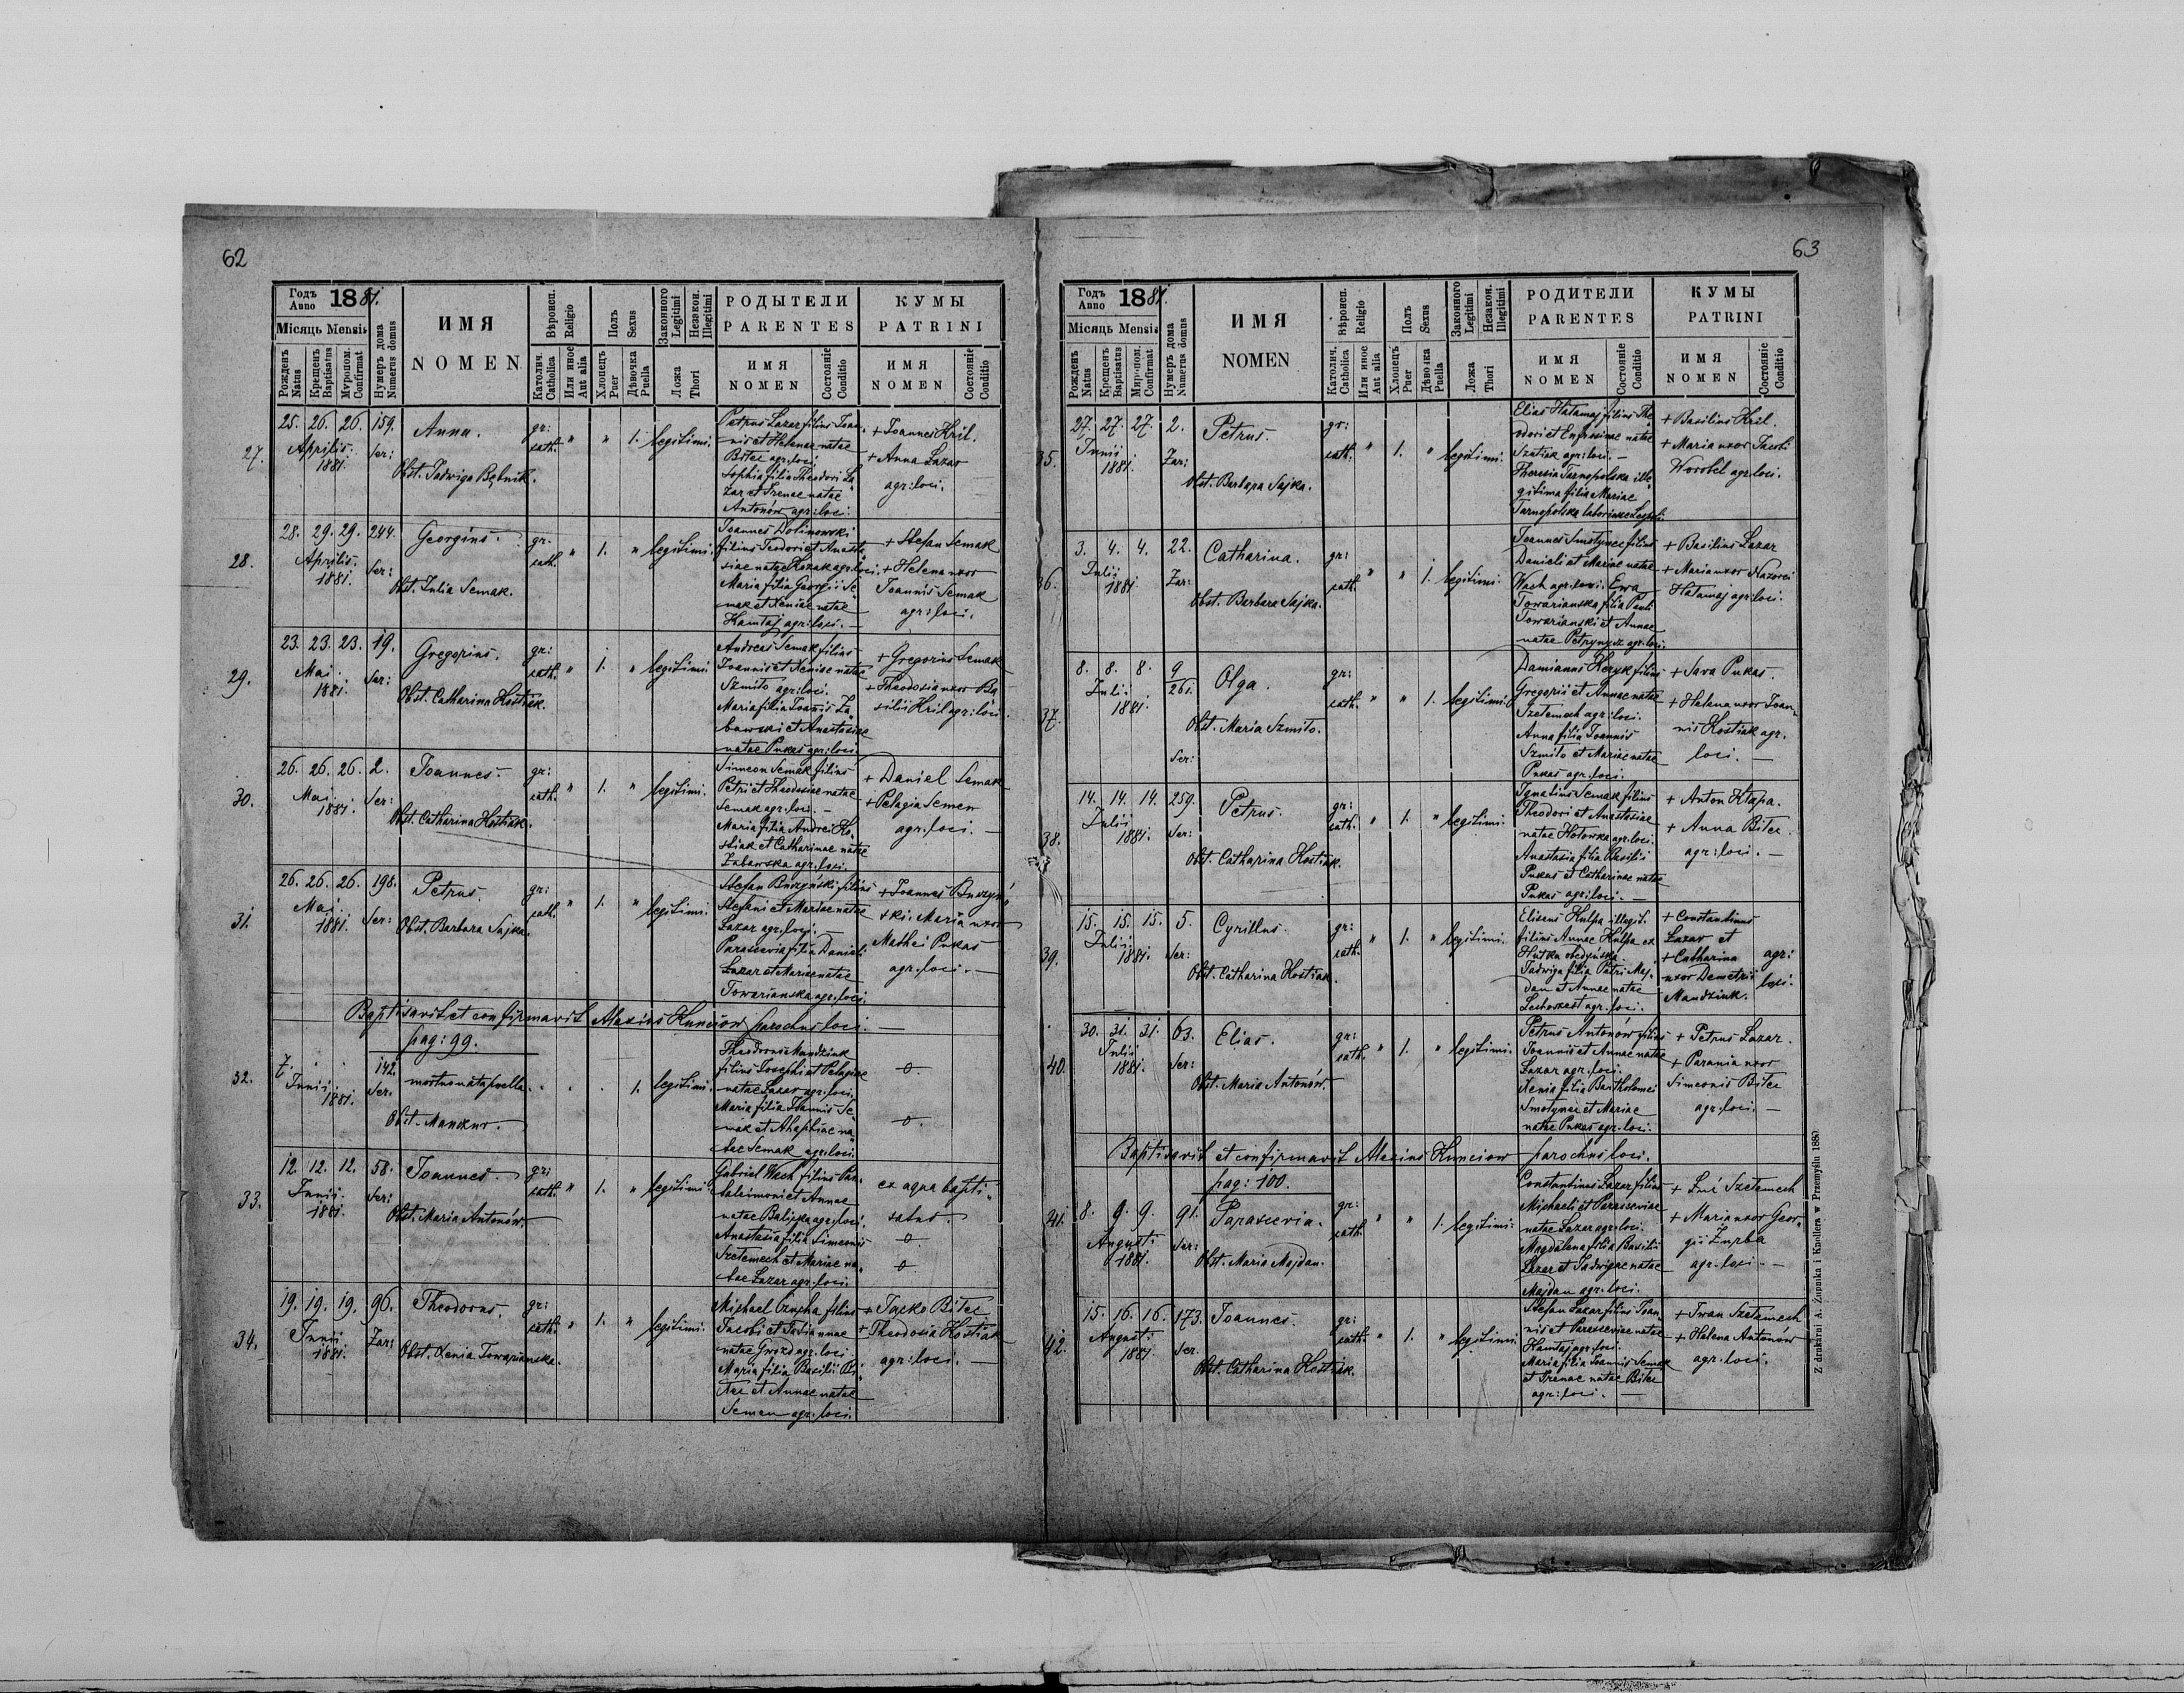 62
Годъ
Anno 1881.
Місяць Mensis
Рожденъ
Natus
Крещенъ
Baptisatus
Мѵропом.
Confirmat
Нумеръ дома
Numerus domus
ИМЯ
NOMEN
Вѣроисп.
Religio
Католич.
Catholica
Или иное
Aut alia
Полъ
Sexus
Хлопецъ
Puer
Дѣвочка
Puella
Законного
Legitimi
Незакон.
Illegitimi
Ложа
Thori
РОДЫТЕЛИ
PARENTES
ИМЯ
NOMEN
Состояніе
Conditio
КУМЫ
PATRINI
ИМЯ
NOMEN
Состояніе
Conditio
27.
25. 26. 26. 159.
Aprilis Ser:
1881.
Anna.
Obst. Jadwiga Bębnik.
gr:
cath. " " 1. legitimi.
Petrus Lazar filius Joan-
nis et Helenae natae
Bitec agr: loci.
Sophia filia Theodori La-
zar et Irenae natae
Antonów agr: loci.
+ Joannes Kril.
+ Anna Lazar
agr: loci.
28.
28. 29. 29. 244.
Aprilis. Ser:
1881.
Georgius.
Obst. Julia Semak.
gr.
cath. " 1. " legitimi.
Joannes Dolinowski
filius Teodori et Anasta-
siae natae Kozak agr: loci.
Maria filia Georgii Se-
mak et Xeniae natae
Hamtaj agr: loci. —
+ Stefan Semak
+ Helena uxor
Joannis Semak
agr: loci.
29.
23. 23. 23. 19.
Mai. Ser:
1881.
Gregorius.
Obst. Catharina Kostiak.
gr:
cath. " 1. " legitimi.
Andreas Semak filius
Joannis et Xeniae natae
Szmito agr: loci.
Maria filia Joannis Za-
bawski et Anastasiae
natae Pukas agr: loci.
+ Gregorius Semak
+ Theodosia uxor Ba-
silii Kril agr: loci.
30.
26. 26. 26. 2.
Mai. Ser:
1881.
Joannes.
Obst. Catharina Kostiak.
gr:
cath. " 1. " legitimi.
Simeon Semak filius
Petri et Theodosiae natae
Semak agr: loci. —
Maria filia Andrei Ko-
stiak et Catharinae natae
Zabawska agr: loci.
+ Daniel Semak
+ Pelagia Semen
agr: loci. —
31.
26. 26. 26. 198.
Mai. Ser:
1881.
Petrus.
Obst. Barbara Sajka.
gr:
cath. " 1. " legitimi.
Stefan Buszyński filius
Stefani et Mariae natae
Lazar agr: loci. —
Parascevia filia Danieli
Lazar et Mariae natae
Towarianska agr: loci.
+ Joannes Buszyń-
ski. Maria uxor
Mathei Pukas
agr: loci. —
Baptisavit et confirmavit Alexius Kunciow parochus loci. —
pag: 99.
32.
7. . . 142.
Junii Ser.
1881.
mortuo nata puella.
Obst. Manszur.
. . . 1. legitimi.
Theodorus Mandziuk
filius Josephi et Pelagiae
natae Lazar agr: loci.
Maria filia Joannis Se-
mak et Ahaphiae na-
tae Semak agr: loci.
—o—
—o.
33.
12. 12. 12. 58.
Junii. Ser:
1881.
Joannes.
Obst. Maria Antonów.
gr:
cath. " 1. " legitimi.
Gabriel Wach filius Pan-
taleimoni et Annae
natae Balicka agr: loci.
Anastasia filia Simeonis
Szetemech et Mariae na-
tae Lazar agr: loci.
ex aqua bapti-
satus.
—o.
—o.
34.
19. 19. 19. 96.
Junii Zar:
1881.
Theodorus.
Obst. Xenia Towarianska.
gr:
cath. " 1. " legitimi.
Michael Czupha filius
Jacobi et Tatiannae
natae Gwozd agr: loci.
Maria filia Basilii Bi-
tec et Annae natae
Semen agr: loci.
+ Jacko Bitec
+ Theodosia Kostiak
agr: loci. —
63
Годъ
Anno 1881.
Місяць Mensis
Рожденъ
Natus
Крещенъ
Baptisatus
Миропом.
Confirmat
Нумеръ дома
Numerus domus
ИМЯ
NOMEN
Вѣроисп.
Religio
Католич.
Catholica
Или иное
Aut alia
Полъ
Sexus
Хлопецъ
Puer
Дѣволка
Puella
Законного
Legitimi
Незакон.
Illegitimi
Ложа
Thori
РОДИТЕЛИ
PARENTES
ИМЯ
NOMEN
Состояніе
Conditio
КУМЫ
PATRINI
ИМЯ
NOMEN
Состояніе
Conditio
35.
27. 27. 27. 2.
Junii Zar:
1881.
Petrus.
Obst. Barbara Sajka.
gr:
cath. " 1. " legitimi.
Elias Hatamaj filius The-
odori et Enfrosinae natae
Szatiak agr: loci. —
Theresia Tarnopolska ille-
gitima filia Mariae
Tarnopolska
+ Basilius Kril.
+ Maria uxor Jacobi
Worobel agr: loci.
36.
3. 4. 4. 22.
Julii Zar:
1881.
Catharina.
Obst. Barbara Sajka.
gr:
cath. " " 1. legitimi.
Joannes Smotynec filius
Danieli et Mariae natae
Wach agr. loci. Ewa
Towarianska filia Pauli
Towarianski et Annae
natae Petrynycz agr: loci.
+ Basilius Lazar
+ Maria uxor Nazorei
Hatamaj agr: loci.
37.
8. 8. 8. 9/261.
Julii
1881.
Ser:
Olga.
Obst. Maria Szmito.
gr:
cath. " " 1. legitimi.
Damianus Heryk filius
Gregorii et Annae natae
Szetemech agr: loci.
Anna filia Joannis
Szmito et Mariae natae
Pukas agr: loci.
+ Sava Pukas.
+ Helena uxor Joan-
nis Kostiak agr.
loci. —
38.
14. 14. 14. 259.
Julii Ser:
1881.
Petrus.
Obst. Catharina Kostiak.
gr:
cath. " 1. " legitimi.
Ignatius Semak filius
Theodori et Anastasiae
natae Hotowka agr: loci.
Anastasia filia Basilii
Pukas et Catharinae natae
Pukas agr: loci. —
+ Anton Ktapa.
+ Anna Bitec.
agr: loci. —
39.
15. 15. 15. 5.
Julii Ser:
1881.
Cyrillus.
Obst. Catharina Kostiak.
gr:
cath. " 1. " legitimi.
Eliseus Hulpa illegit.
filius Annae Hulpa ex
Hutka obedyńska.
Jadwiga filia Petri Maj-
dan et Annae natae
agr: loci.
+ Constantinus
Lazar et
+ Catharina agr:
uxor Demetrii loci.
Mandziuk.
40.
30. 31. 31. 63.
Julii Ser:
1881.
Elias.
Obst. Maria Antonów.
gr:
cath. " 1. " legitimi.
Petrus Antonów filius
Joannis et Annae natae
Lazar agr: loci.
Xenia filia Bartholomei
Smotynec et Mariae
natae Pukas agr: loci.
+ Petrus Lazar.
+ Parania uxor
Simeonis Bitec
agr: loci. —
Baptisavit et confirmavit Alexius Kunciow parochus loci.
pag: 100.
41.
8. 9. 9. 91.
Augusti Ser:
1881.
Parascevia.
Obst. Maria Majdan.
gr:
cath. " " 1. legitimi.
Constantinus Lazar filius
Michaeli et Parasceviae
natae Lazar agr: loci.
Magdalena filia Basilii
Lazar et Jadwigae natae
Majdan agr: loci.
+ Luć Szetemech
+ Maria uxor Geor-
gii Zurba
agr: loci. —
42.
15. 16. 16. 173.
Augusti Ser.
1881.
Joannes.
Obst. Catharina Kostiak.
gr:
cath. " 1. " legitimi.
Stefan Lazar filius Joan-
nis et Parasceviae natae
Hamtaj agr: loci.
Maria filia Joannis Semak
et Irenae natae Bitec
agr: loci. —
+ Iwan Szetemech
+ Helena Antonów
agr: loci.
Z drukarni A. Żupnika i Knollera w Przemyślu 1880.